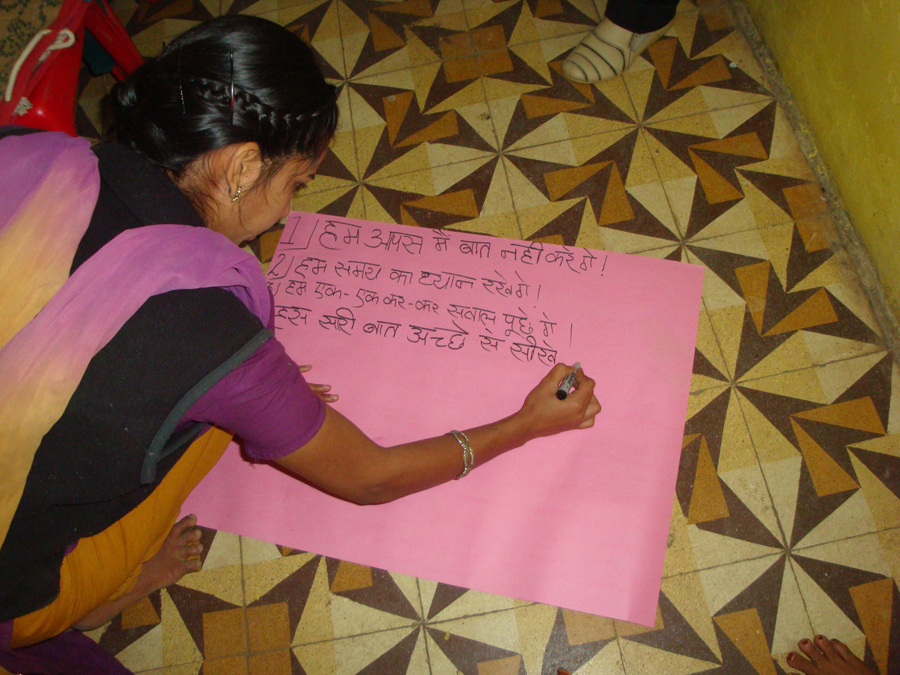 1) हम आपस में बात नही करेंगे!
2) हम समय का ध्यान रखेंगे।
) हम एक-एक कर-कर सवाल पूछेंगे।
हम सारी बात अच्छे से सीखे